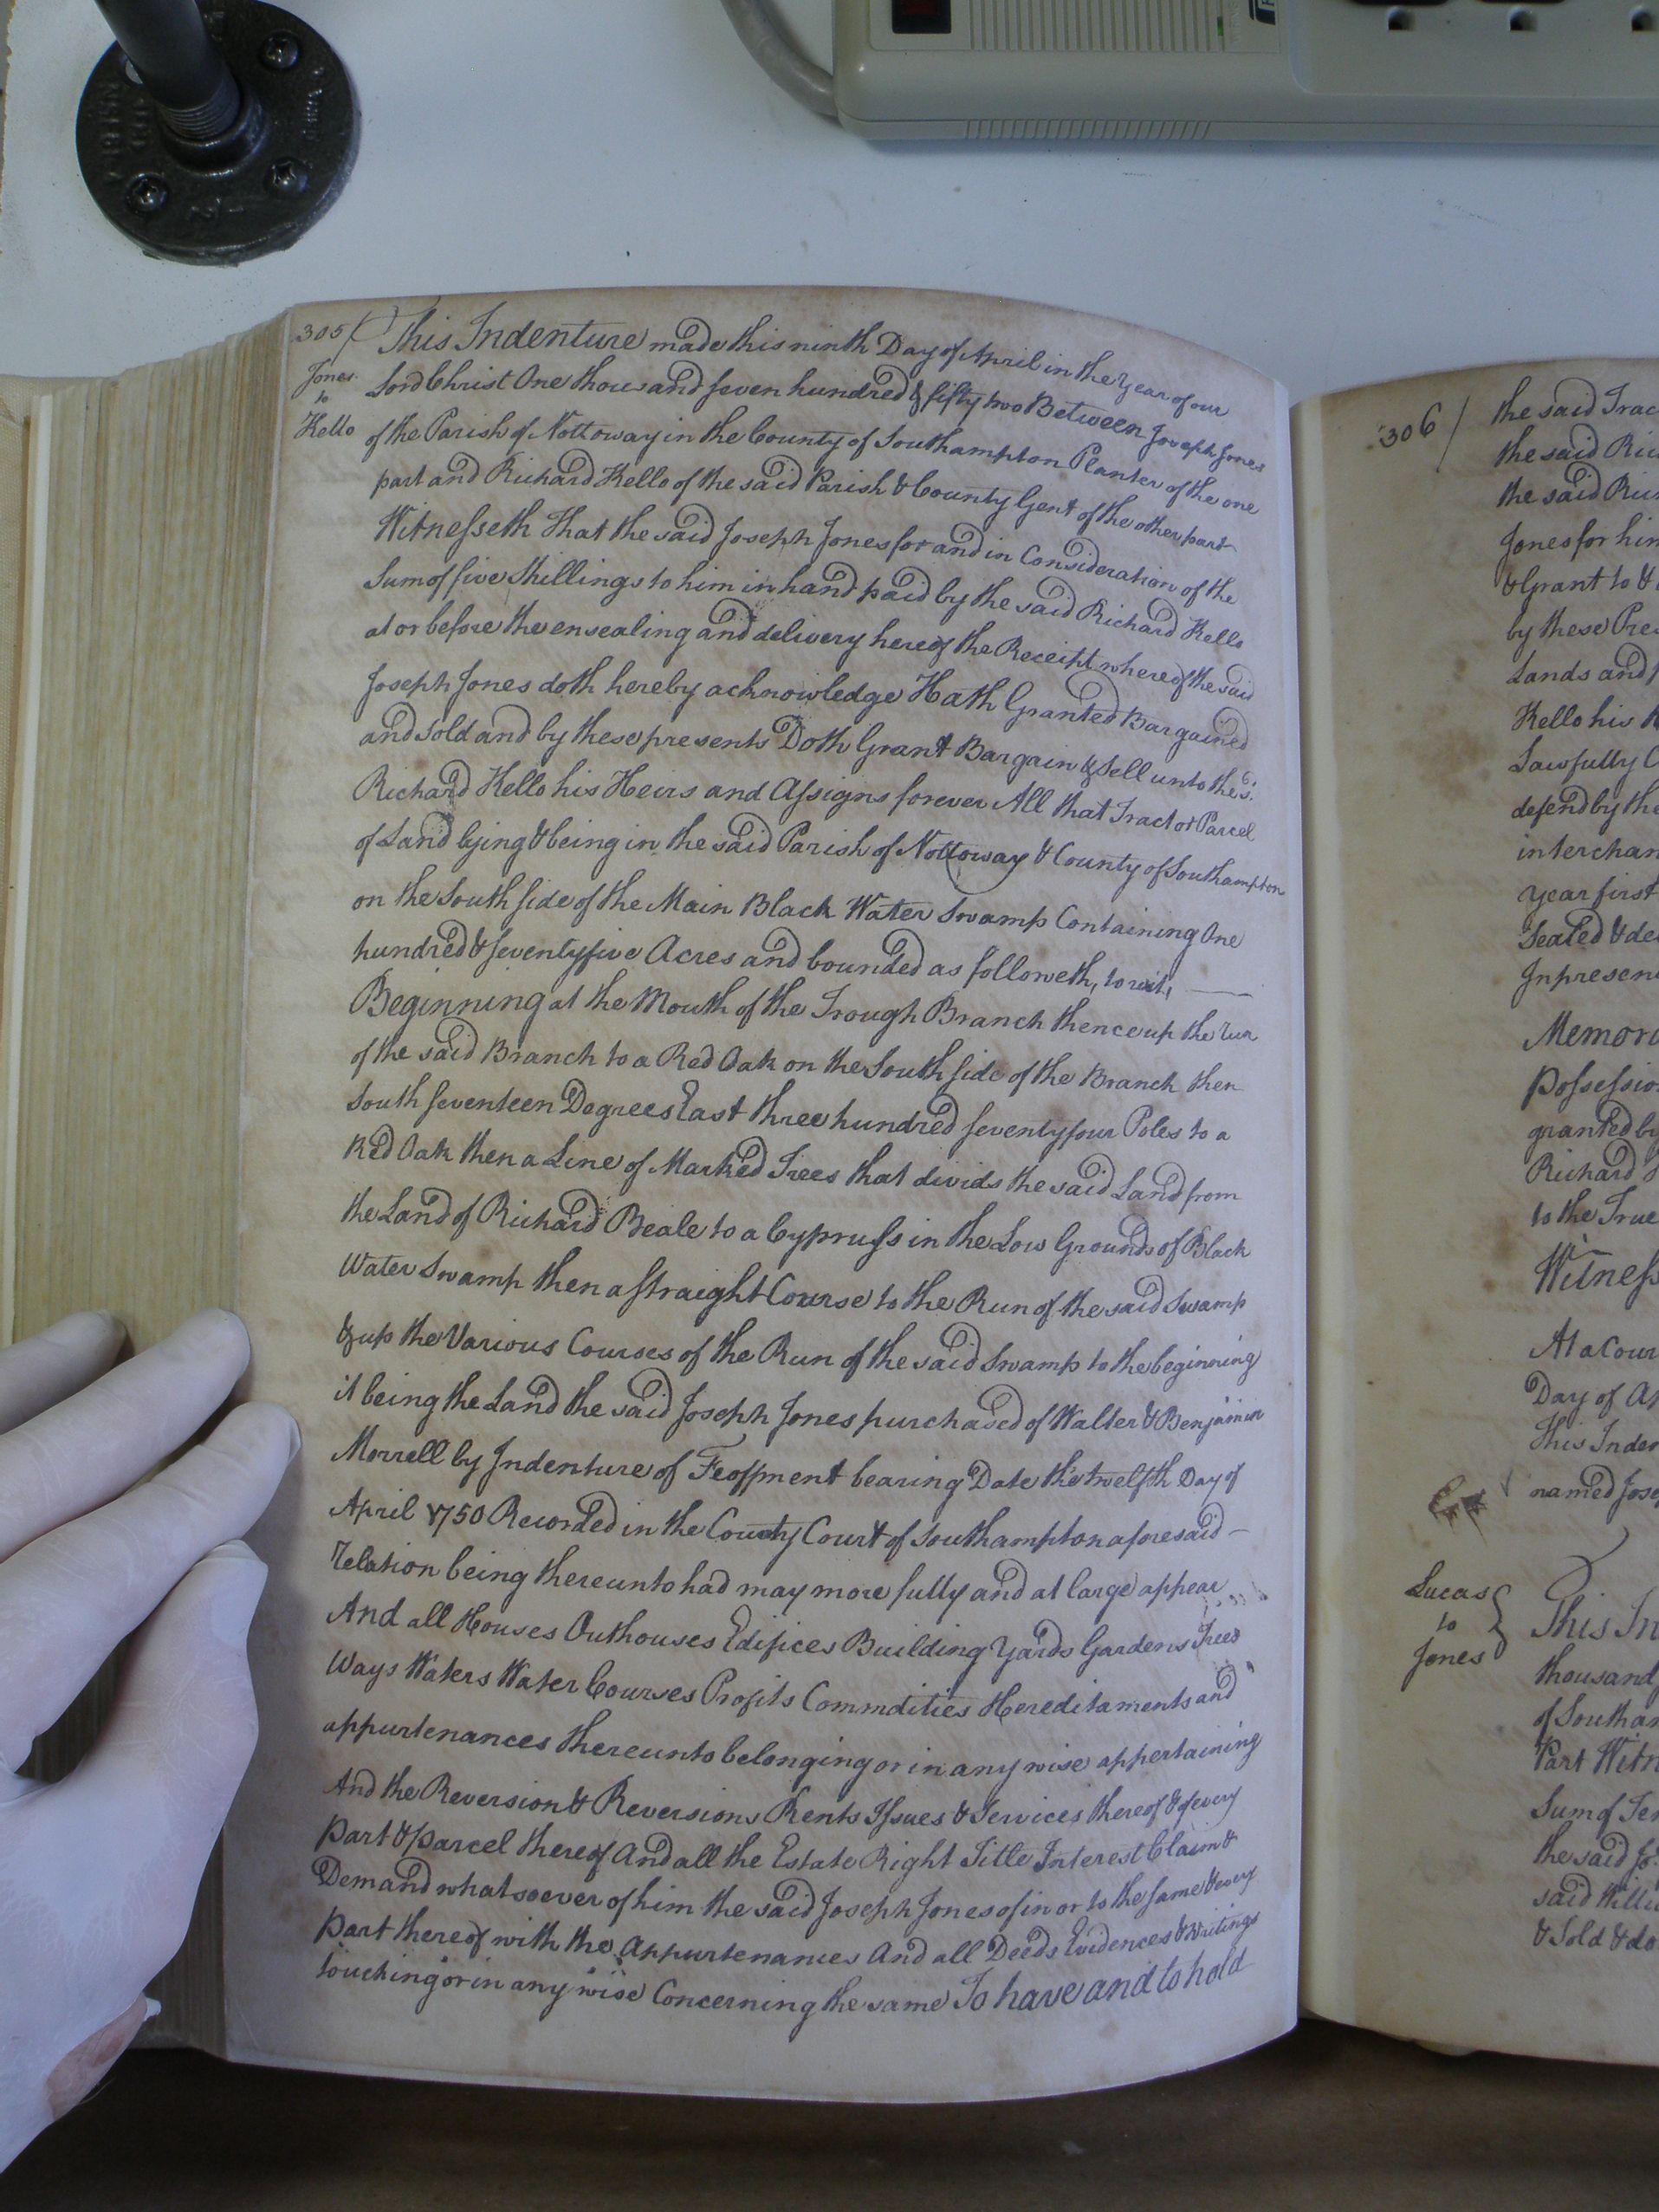 305/ This Indenture made this ninth Day of April in the Year of our
Jones to Kello
Lord Christ One thousand seven hundred & fifty two Between Joseph Jones
of the Parish of Nottoway in the County of Southampton Planter of the one
part and Richard Kello of the said Parish & County Gent of the other part
Witnesseth That the said Joseph Jones for and in Consideration of the
Sum of five Shillings to him in hand paid by the said Richard Kello
at or before the ensealing and delivery hereof the Receipt whereof the said
Joseph Jones doth hereby acknowledge Hath Granted Bargained
and Sold and by these presents Doth Grant Bargain & Sell unto the sd.
Richard Kello his Heirs and Assigns forever All that Tract or Parcel
of Land lying & being in the said Parish of Nottoway & County of Southampton
on the South side of the Main Black Water Swamp Containing One
hundred & seventy five Acres and bounded as followeth, to wit,
Beginning at the Mouth of the Trough Branch thence up the run
of the said Branch to a Red Oak on the South side of the Branch then
South seventeen Degrees East three hundred seventy four Poles to a
Red Oak then a Line of Marked Trees that divids the said Land from
the Land of Richard Beale to a Cypruss in the Low Grounds of Black
Water Swamp then a straight Course to the Run of the said Swamp
& up the Various Courses of the Run of the said Swamp to the beginning
it being the Land the said Joseph Jones purchased of Walter & Benjamin
Morrell by Indenture of Feoffment bearing Date the twelfth Day of
April 1750 Recorded in the County Court of Southampton aforesaid -
relation being thereunto had may more fully and at large appear
And all Houses Outhouses Edifices Building Yards Gardens Trees
Ways Waters Water Courses Profits Commdities Hereditaments and
appurtenances thereunto belonging or in any wise appertaining
And the Reversion & Reversions Rents Issues & Services thereof & of every
part & parcel thereof And all the Estate Right Title Interest Claim &
Demand whatsoever of him the said Joseph Jones of in or to the same & every
part thereof with the Appurtenances And all Deeds Evidences & Writings
touching or in any wise Concerning the same To have and to hold
306/ the said Trac
the said Ric
the said Ric
Jones for him
& Grant to &
by these Pre
Lands and
Kello his
Lawfully C
defend by the
interchan
year first
Sealed & de
In presen
Memor
possessio
granted by
Richard
to the True
Witness
At a Cour
Day of Ap
This Inden
named Jose
Lucas
to
Jones
This In
thousand
of Southam
Part Witn
Sum of Te
the said Jo
said Willi
& Sold & do